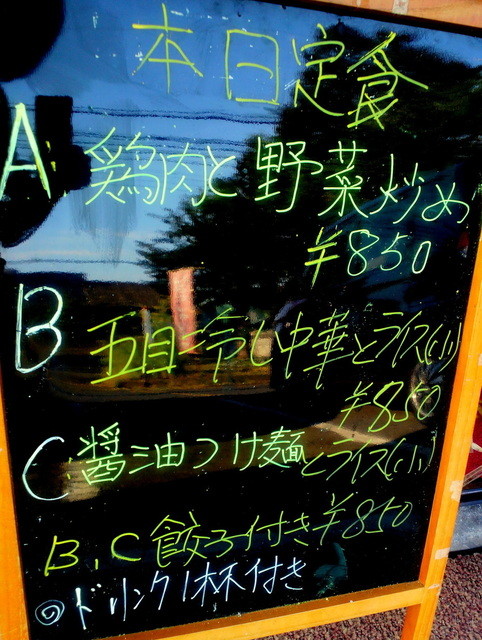 本日定食
A 鶏肉と野菜炒め
¥850
B 五目冷し中華とライス(小)
¥850
C 醤油つけ麺とライス(小)
B、C餃子付き¥850
◎ドリンク1杯付き